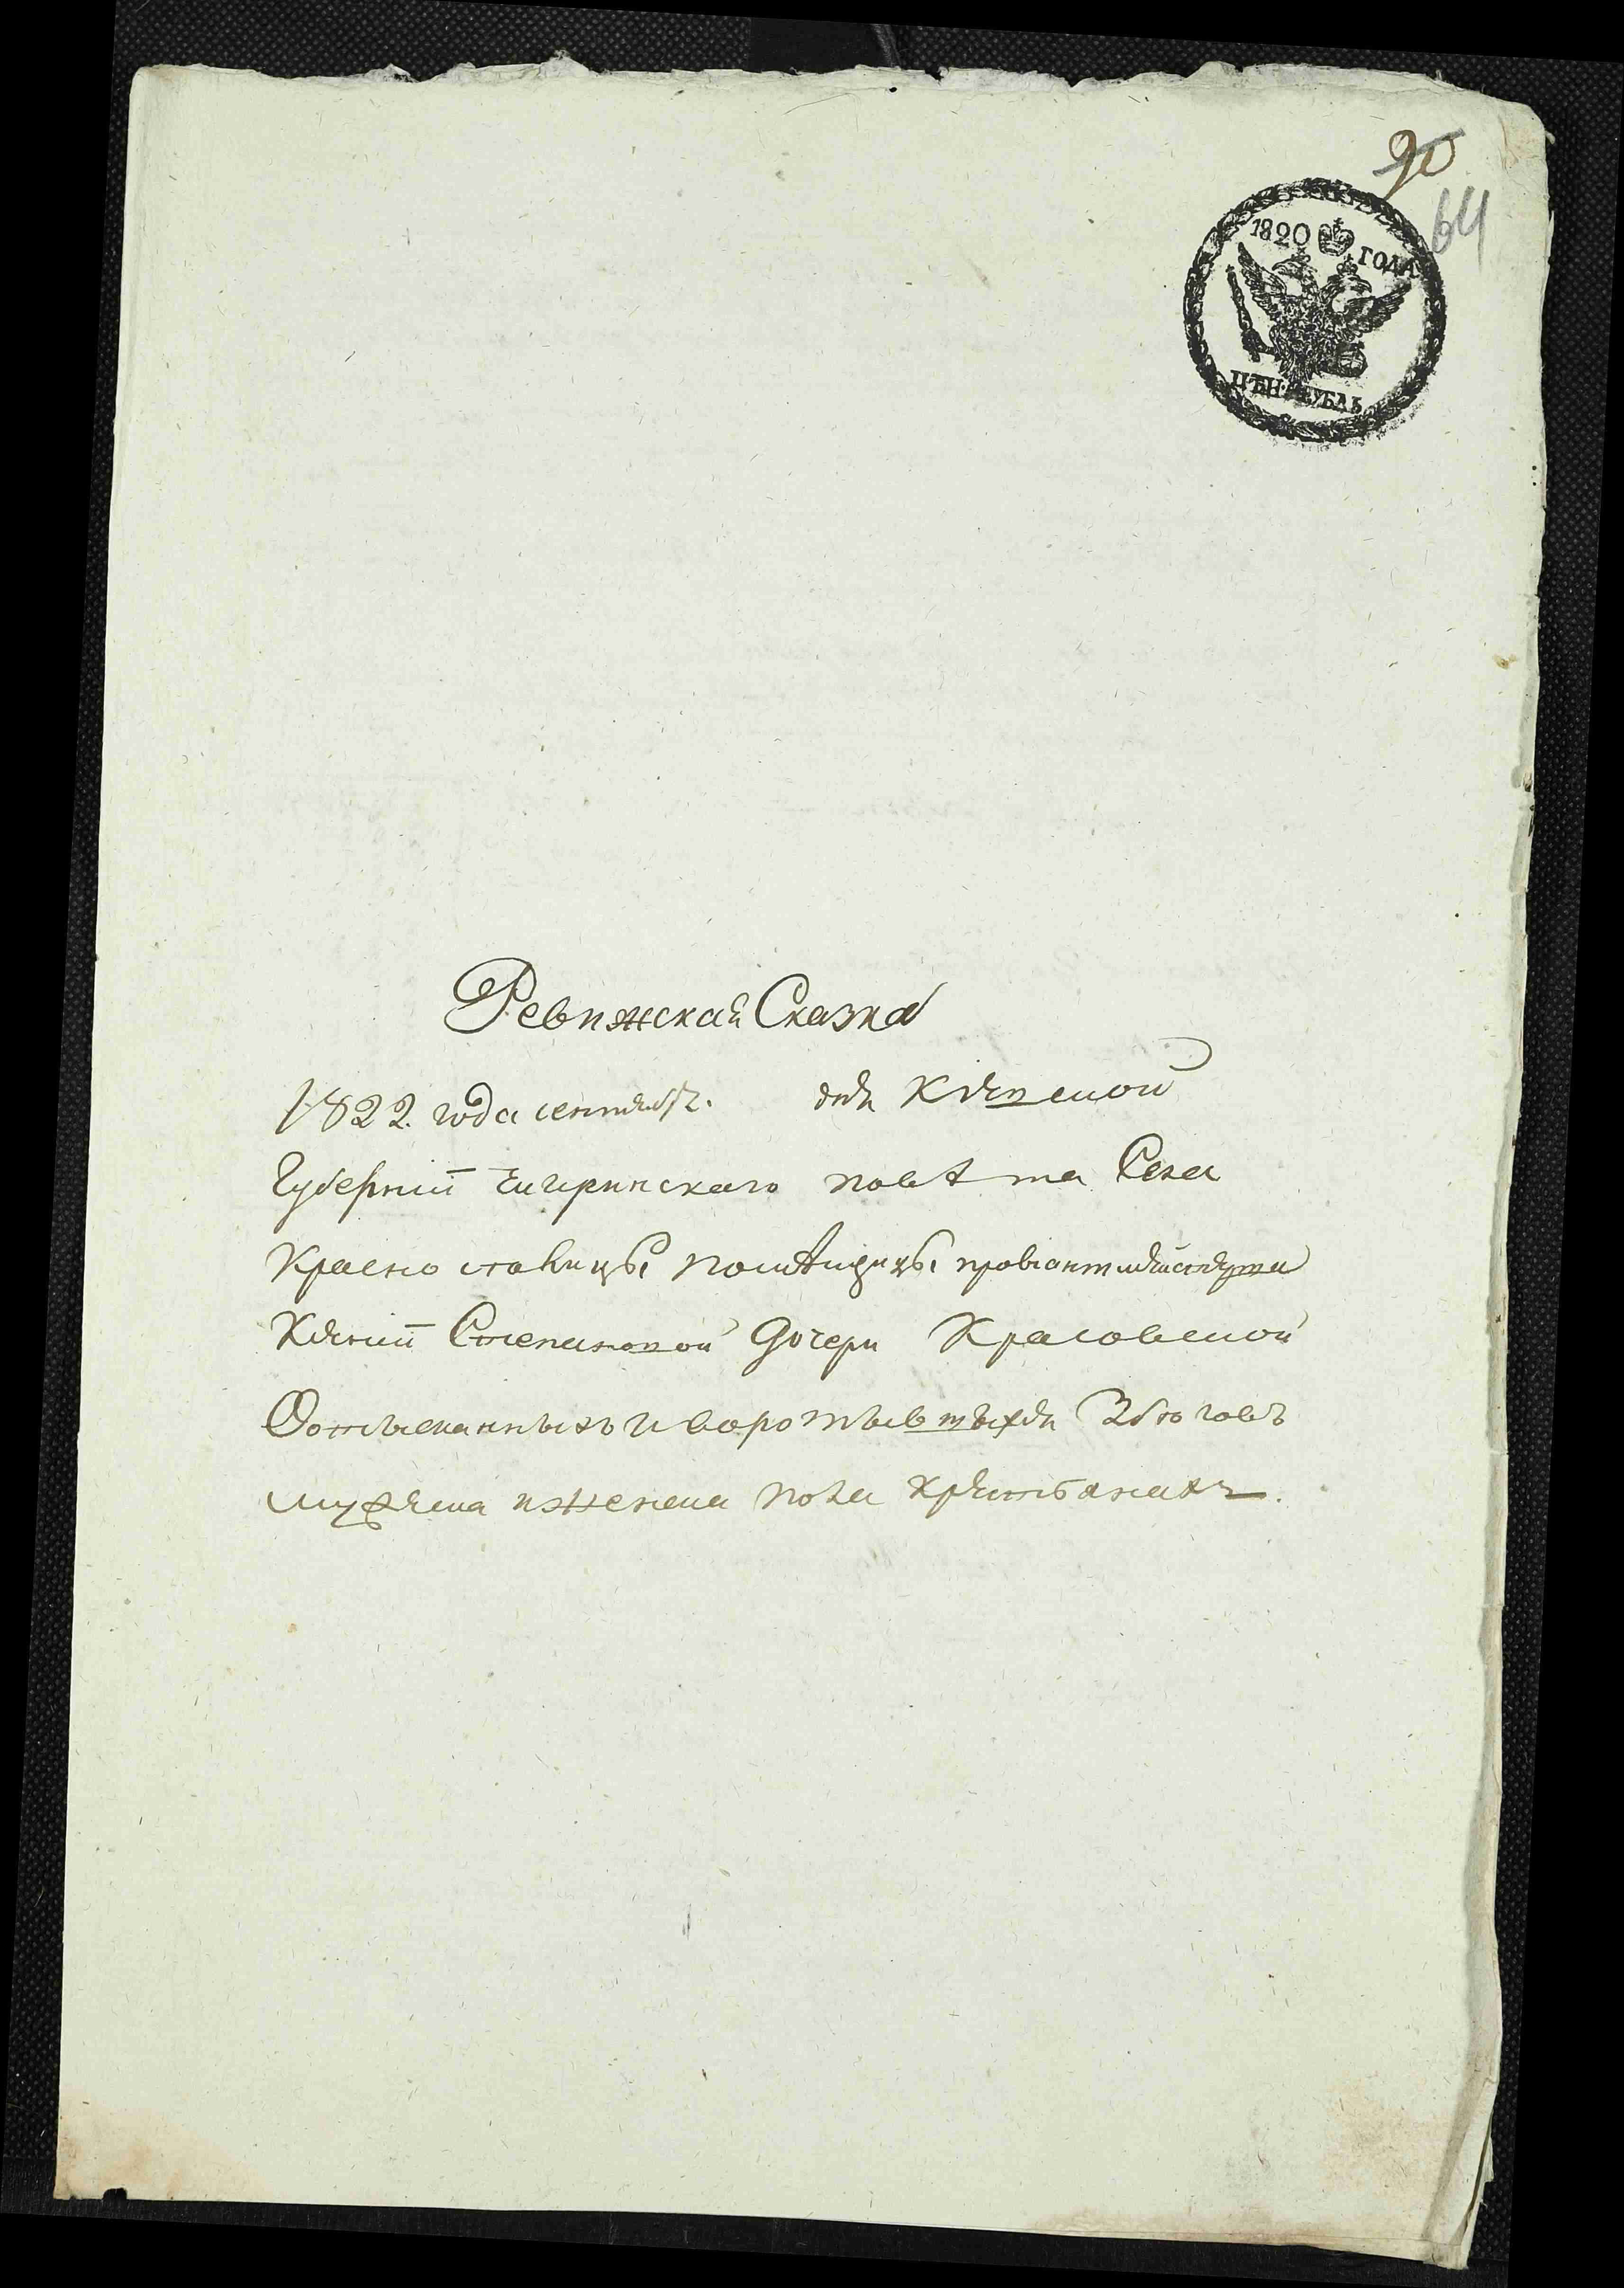 90
64
1820 ГОДА
ЦѢН. РУБЛЬ
Ревижская Сказка
1822. года сентября. дня Кіевской
Губерніи Чигринскаго повѣта Села
Красноставицы помѣщицы провіантмейстера
Степановой Дочери Красовской
О отысканныхъ и воротившихся Збѣговъ
мужеска и женска пола крестьянахъ.